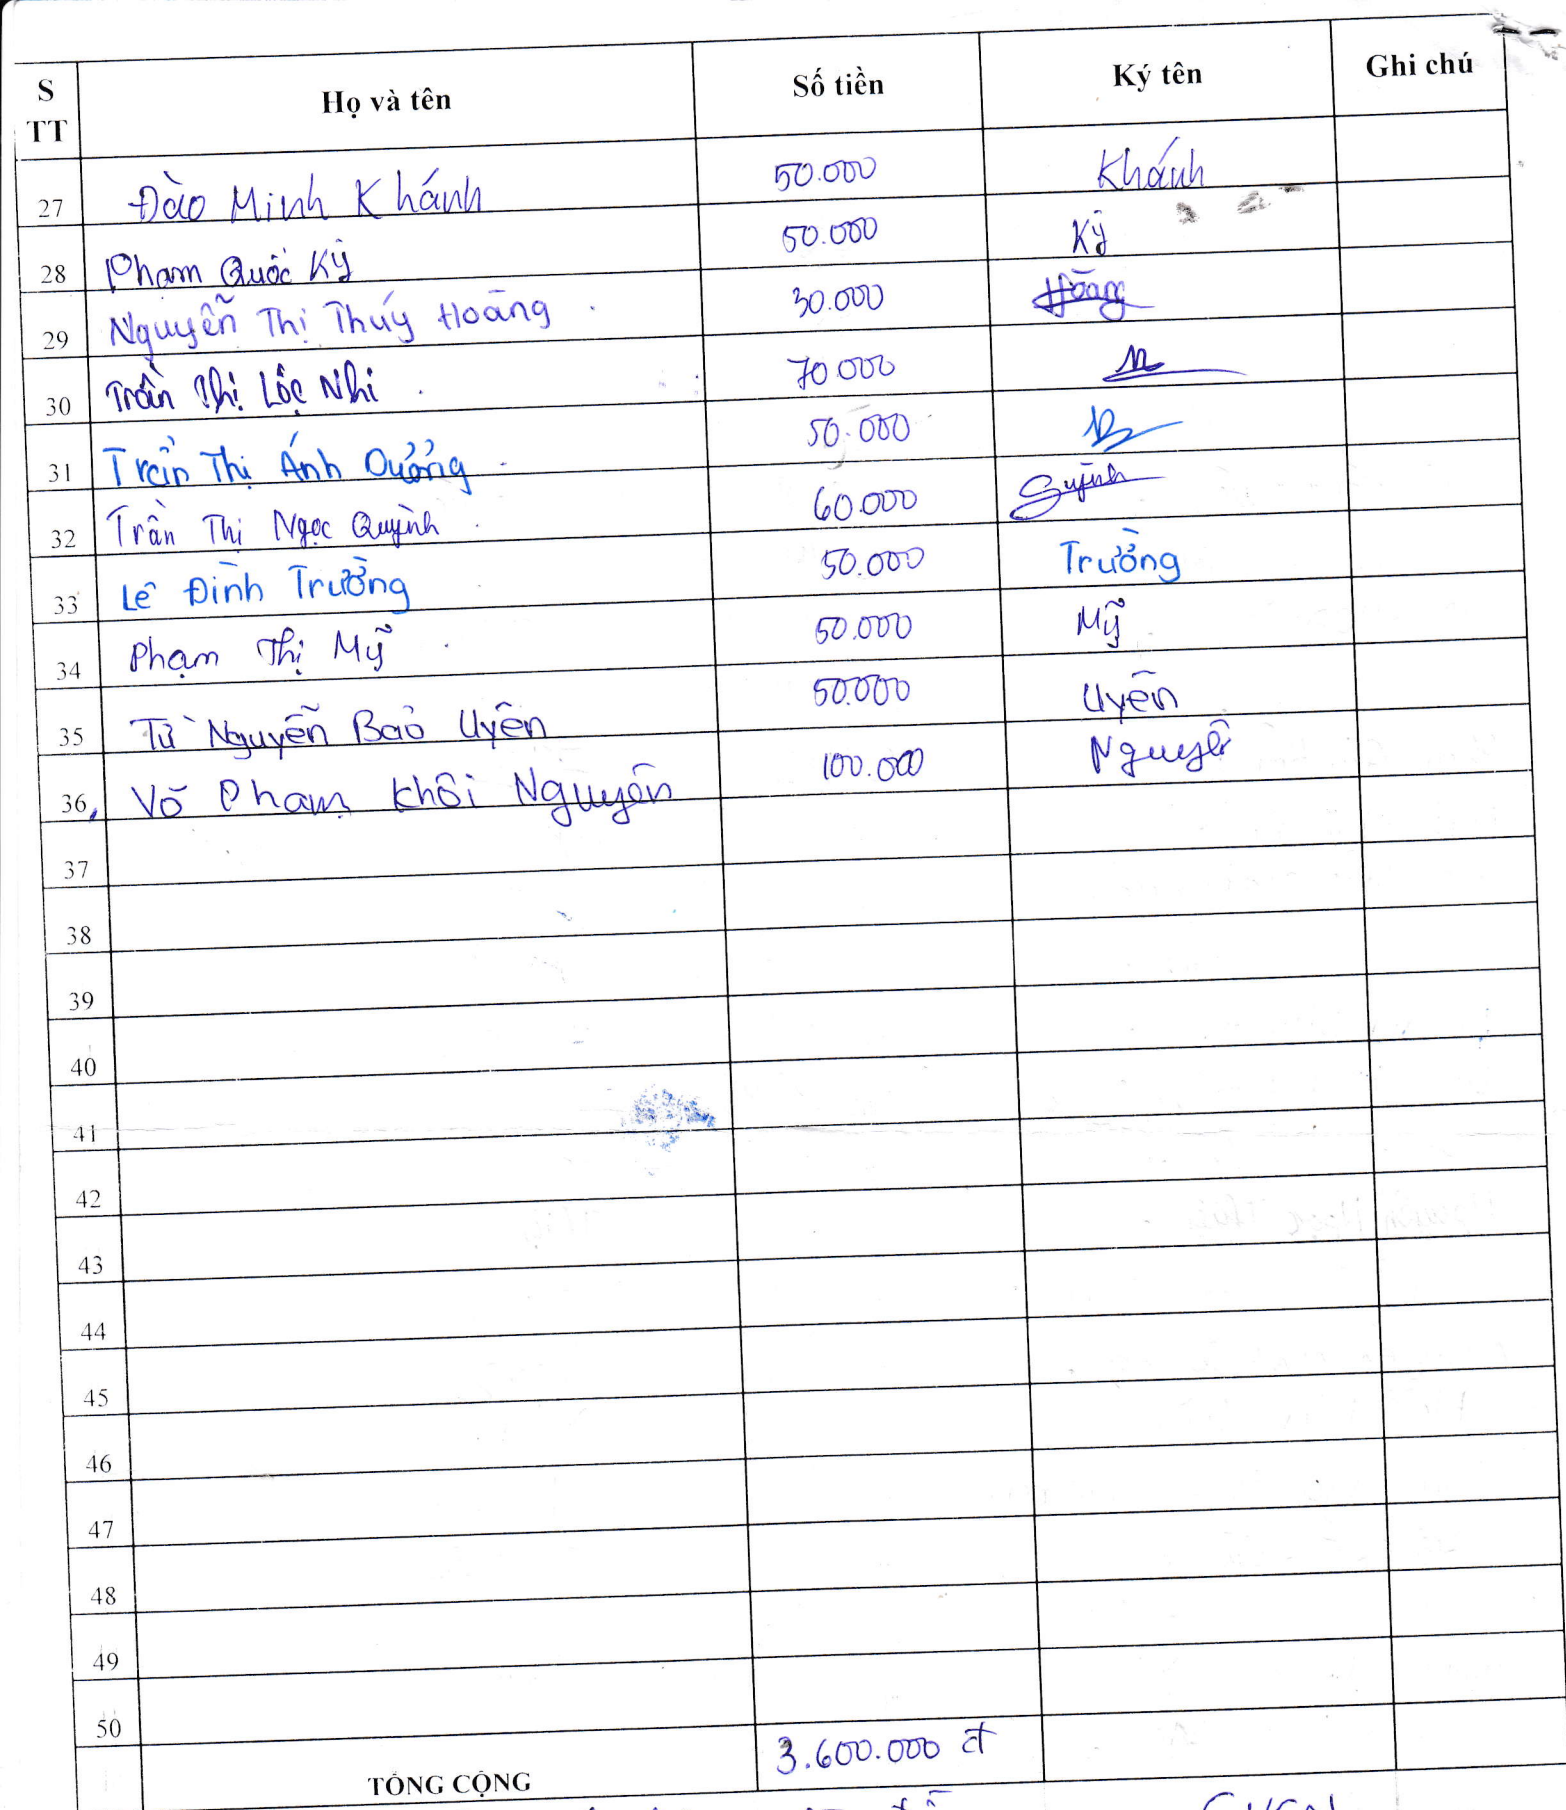 S TT Họ và tên Số tiền Ký tên Ghi chú
27 Đào Minh Khánh 50.000 Khánh
28 Phạm Quốc Kỳ 50.000 Kỳ
29 Nguyễn Thị Thúy Hoàng 30.000 Hoàng
30 Trần Thị Lộc Nhi 70.000
31 Trần Thị Ánh Dương 50.000
32 Trần Thị Ngọc Quỳnh 60.000 Quỳnh
33 Lê Đình Trường 50.000 Trường
34 Phạm Thị Mỹ 50.000 Mỹ
35 Từ Nguyễn Bảo Uyên 50.000 Uyên
36 Võ Phạm Khôi Nguyên 100.000 Nguyên
37
38
39
40
41
42
43
44
45
46
47
48
49
50
TỔNG CỘNG 3.600.000 đ